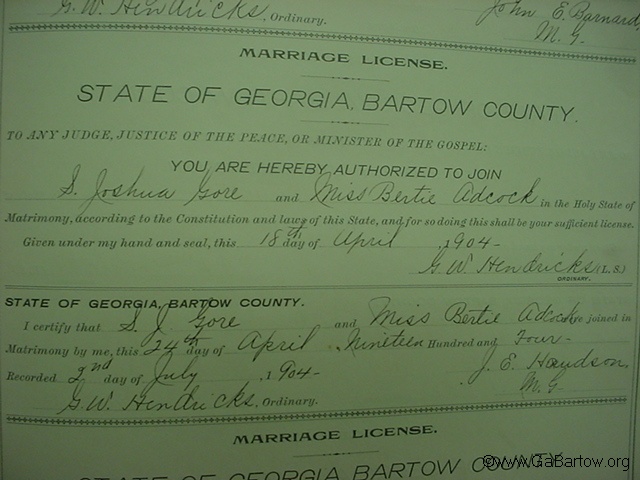 G. W. Hendricks, Ordinary.
John E. Barnard,
M. G.
MARRIAGE LICENSE.
STATE OF GEORGIA, BARTOW COUNTY.
TO ANY JUDGE, JUSTICE OF THE PEACE, OR MINISTER OF THE GOSPEL:
YOU ARE HEREBY AUTHORIZED TO JOIN
S. Joshua Gore and Miss Bertie Adcock in the Holy State of
Matrimony, according to the Constitution and laws of this State, and for so doing this shall be your sufficient license.
Given under my hand and seal, this 18th day of April, 1904-
G. W. Hendricks (L. S.)
ORDINARY.
STATE OF GEORGIA, BARTOW COUNTY.
I certify that S. J. Gore and Miss Bertie Adcock were joined in
Matrimony by me, this 24th day of April, Nineteen Hundred and Four-
Recorded 2nd day of July, 1904- J. E.
G. W. Hendricks, Ordinary. M. G.
MARRIAGE LICENSE.
STATE OF GEORGIA, BARTOW COUNTY.
©www.GaBartow.org